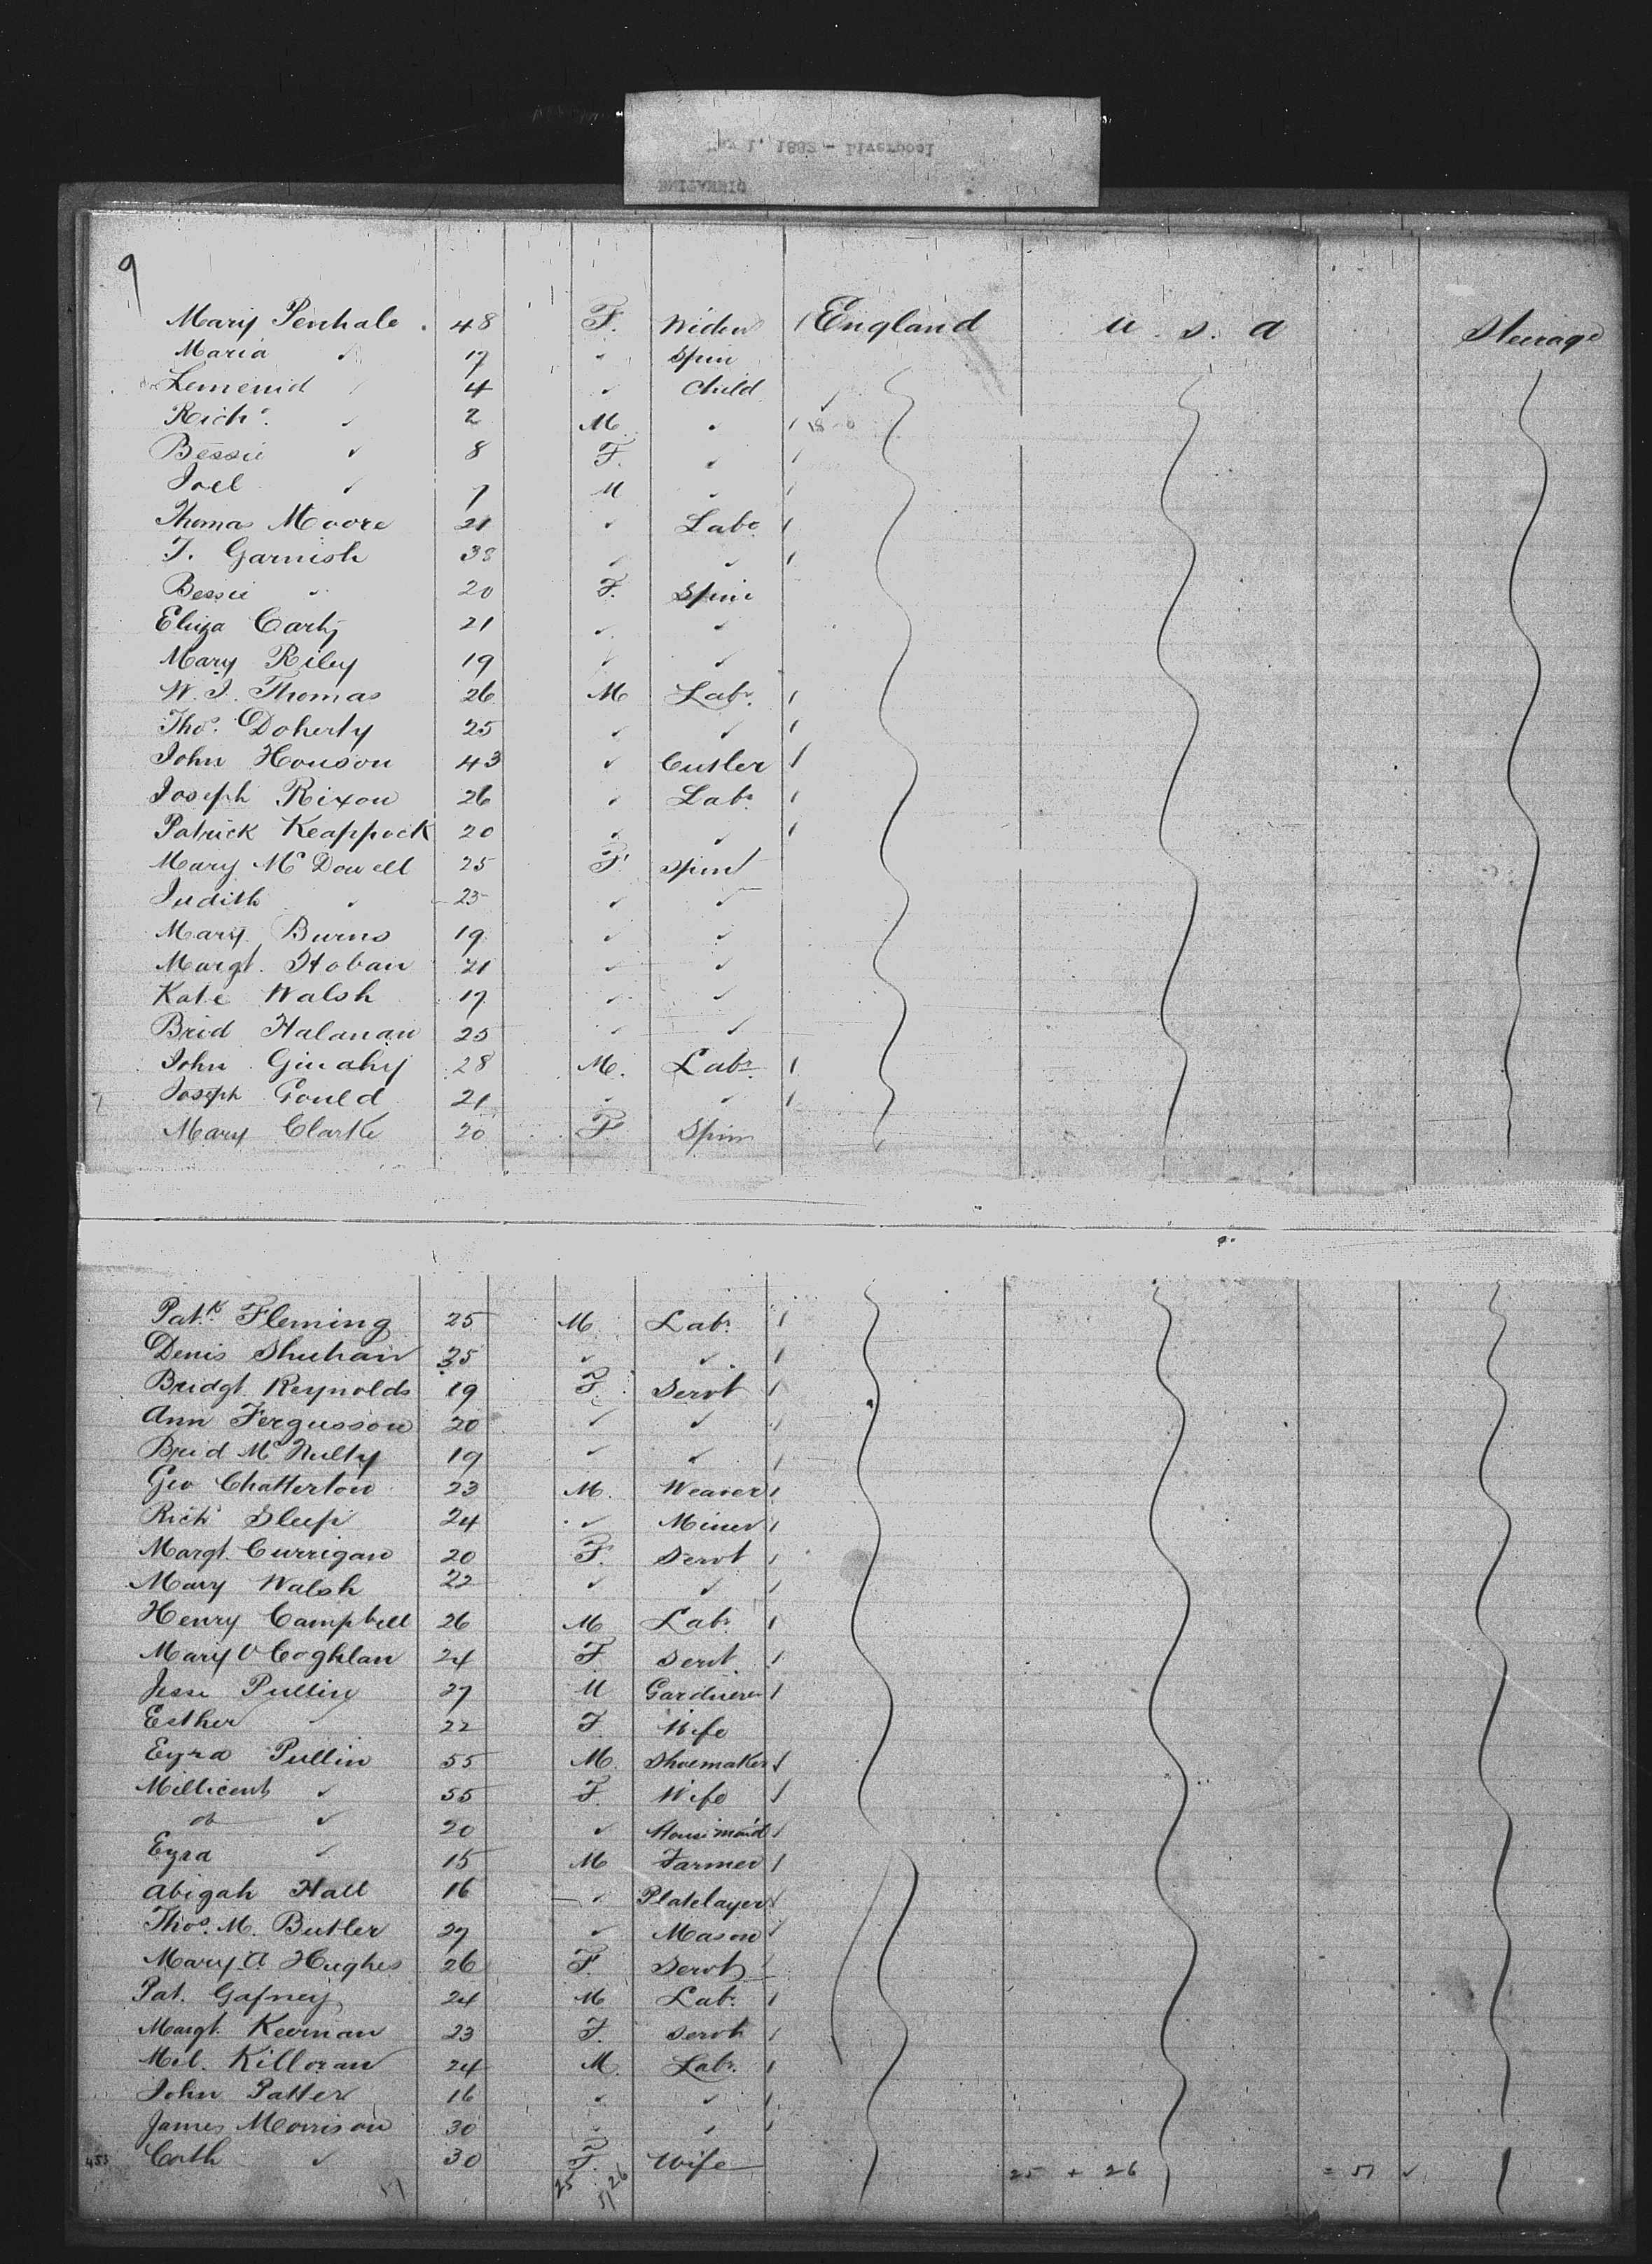 May 1, 1882 - Liverpool
BRITANNIC
9
Mary Penhale . 48 F. Widow England U. S. A Steerage
Maria ✓ 17 " Spin
4 ✓ Child
Rich. ✓ 2 M ✓
Bessie ✓ 8 F. ✓
Joel ✓ 7 M ✓
Thomas Moore 21 ✓ Labr
T. Garnish 38 ✓ ✓
Bessie ✓ 20 F. Spin
Eliza Carty 21 ✓ ✓
Mary Riley 19 ✓ ✓
W. J. Thomas 26 M Labr.
Thos. Doherty 25 ✓ ✓
John Houson 43 ✓ Cutler
Joseph Rixon 26 ✓ Labr
Patrick Keappock 20 ✓ ✓
Mary McDowell 25 F Spin
Judith ✓ 23 ✓ ✓
Mary Burns 19 ✓ ✓
Margt. Hoban 21 ✓ ✓
Kate Walsh 17 ✓ ✓
Brid Halanan 25 ✓ ✓
John 28 M. Labr
Joseph Gould 21 ✓ ✓
Mary Clarke 20 F Spin
Patk. Fleming 25 M Labr.
Denis Shuhan 35 ✓ ✓
Bridgt Reynolds 19 F. Servt
Ann Fergusson 20 ✓ ✓
Brid McNulty 19 ✓ ✓
Geo Chatterton 23 M. Weaver
Rich Sleep 24 ✓ Miner
Margt. Currigan 20 F. Servt
Mary Walsh 22 ✓ ✓
Henry Campbell 26 M Labr.
Mary O Coghlan 24 F Servt
Jesse Pullin 27 M Gardner
Esther ✓ 22 F. Wife
Ezra Pullin 55 M. Shoemaker
Millicent ✓ 55 F. Wife
do ✓ 20 ✓ Housemaid
Ezra ✓ 15 M Farmer
Abigah Hall 16 ✓ Platelayer
Thos. M. Butler 27 ✓ Mason
Mary A Hughes 26 F. Servt
Pat. Gafney 24 M Labr.
Margt. Keernan 23 F. Servt
Mil. Killoran 24 M. Labr.
John Patter 16 ✓ ✓
James Morrison 30 ✓ ✓
453 Cath ✓ 30 F. Wife
51 25 26 51 25 + 26 = 51 ✓